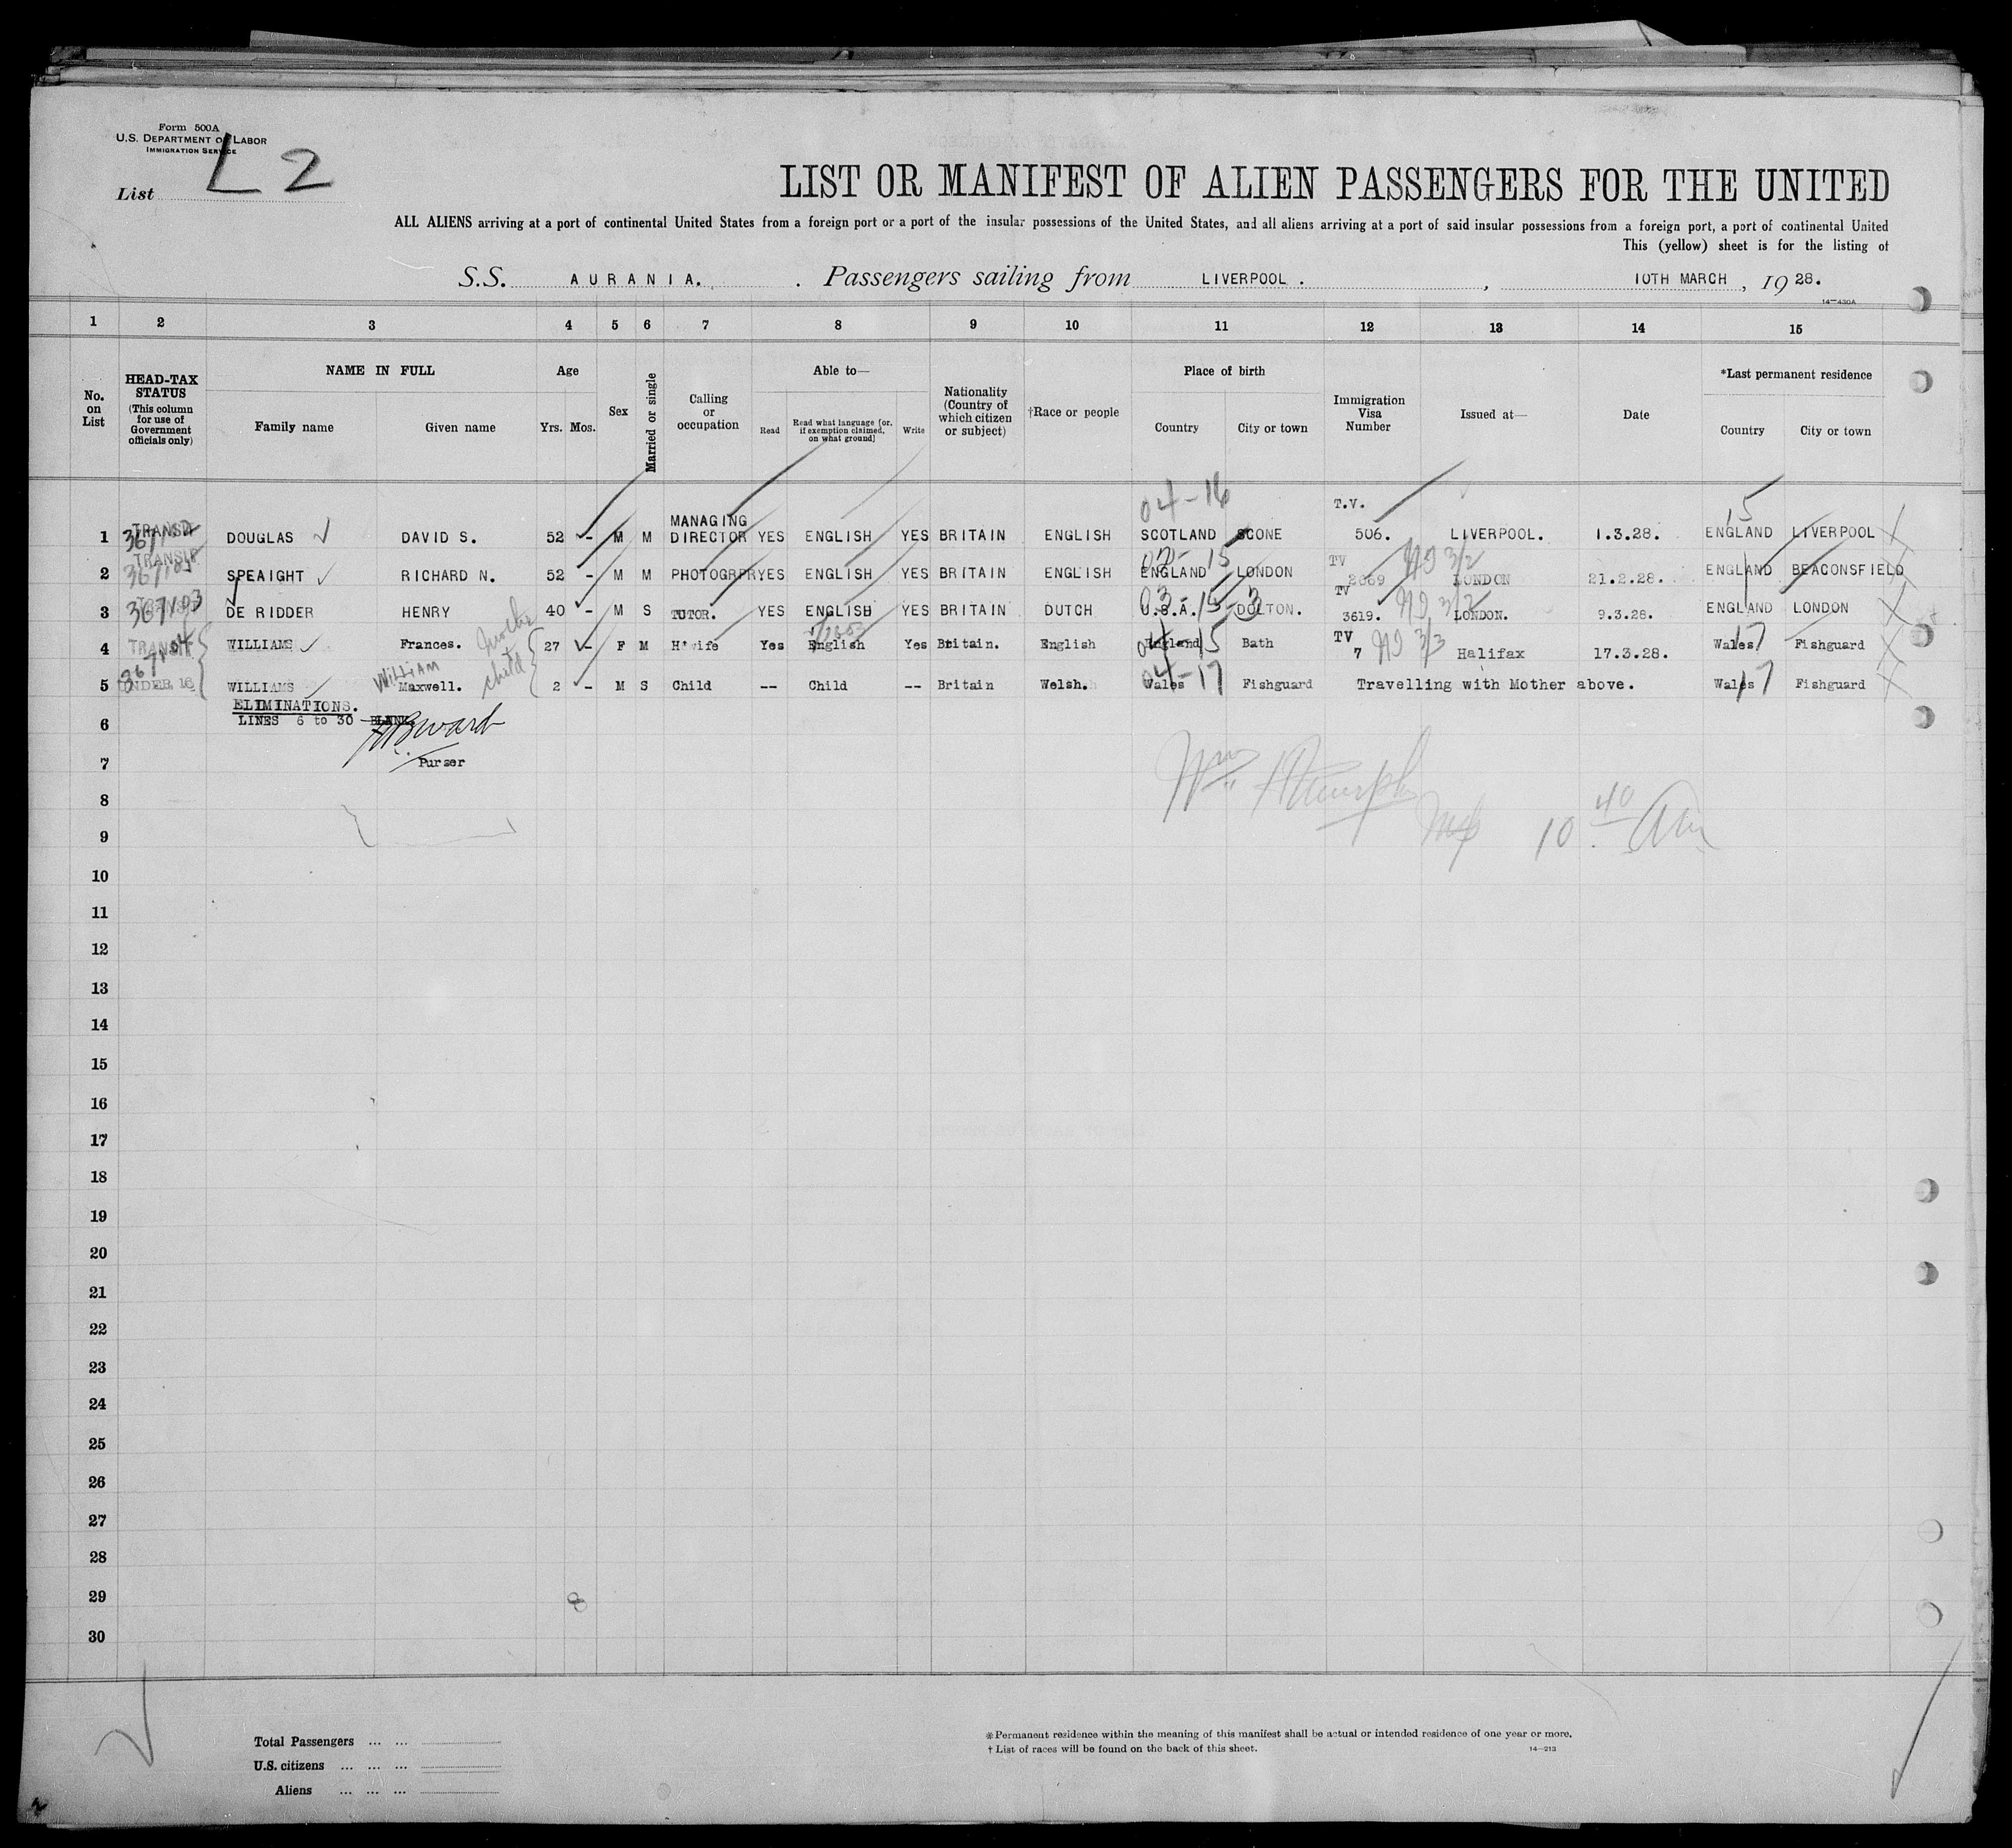 Form 500A
U.S. DEPARTMENT OF LABOR
IMMIGRATION SERVICE
List L 2
LIST OR MANIFEST OF ALIEN PASSENGERS FOR THE UNITED
ALL ALIENS arriving at a port of continental United States from a foreign port or a port of the insular possessions of the United States, and all aliens arriving at a port of said insular possessions from a foreign port, a port of continental United
This (yellow) sheet is for the listing of
S.S. AURANIA. Passengers sailing from LIVERPOOL. , 10TH MARCH , 1928.
14—430A
1 2 3 4 5 6 7 8 9 10 11 12 13 14 15
No. on List
HEAD-TAX STATUS (This column for use of Government officials only)
NAME IN FULL
Family name Given name
Age
Yrs. Mos.
Sex
Married or single
Calling or occupation
Able to—
Read
Read what language [or, if exemption claimed, on what ground]
Write
Nationality (Country of which citizen or subject)
†Race or people
Place of birth
Country City or town
Immigration Visa Number
Issued at—
Date
*Last permanent residence
Country City or town
04-16 T.V. 15
1 TRANSIT DOUGLAS DAVID S. 52 - M M MANAGING DIRECTOR YES ENGLISH YES BRITAIN ENGLISH SCOTLAND SCONE 506. LIVERPOOL. 1.3.28. ENGLAND LIVERPOOL
2 TRANSIT SPEAIGHT RICHARD N. 52 - M M PHOTOGRPR YES ENGLISH YES BRITAIN ENGLISH ENGLAND 15 LONDON TV 2669 LONDON 21.2.28. ENGLAND BEACONSFIELD
3 367103 DE RIDDER HENRY 40 - M S TUTOR. YES ENGLISH YES BRITAIN DUTCH U.S.A. DOLTON. TV 3619. LONDON. 9.3.28. ENGLAND LONDON
4 TRANSIT 367104 WILLIAMS Frances. Mother 27 - F M H'wife Yes English Yes Britain. English England 15 Bath TV 7 3/3 Halifax 17.3.28. Wales 17 Fishguard
5 UNDER 16 WILLIAMS William Maxwell. child 2 - M S Child -- Child -- Britain Welsh. 04-17 Wales Fishguard Travelling with Mother above. Wales 17 Fishguard
ELIMINATIONS.
6 LINES 6 to 30 BLANK.
7 Purser
8
9 10 40 AM
10
11
12
13
14
15
16
17
18
19
20
21
22
23
24
25
26
27
28
29
30
Total Passengers ... ...
U.S. citizens ... ... ...
Aliens ... ... ...
*Permanent residence within the meaning of this manifest shall be actual or intended residence of one year or more.
† List of races will be found on the back of this sheet.
14—213